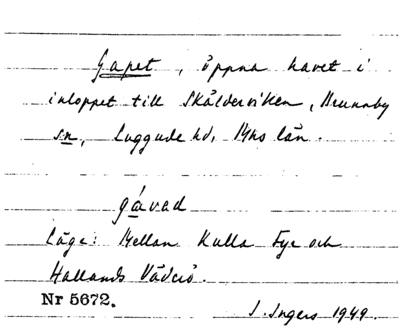 Gapet, öppna havet i
inloppet till Skälderviken, Brunnby
sn, Luggude hd, Mhs län.
gávad
Läge: Mellan Kulla Fyr och
Hallands Väderö.
Nr 5672.
I. Ingers 1949.